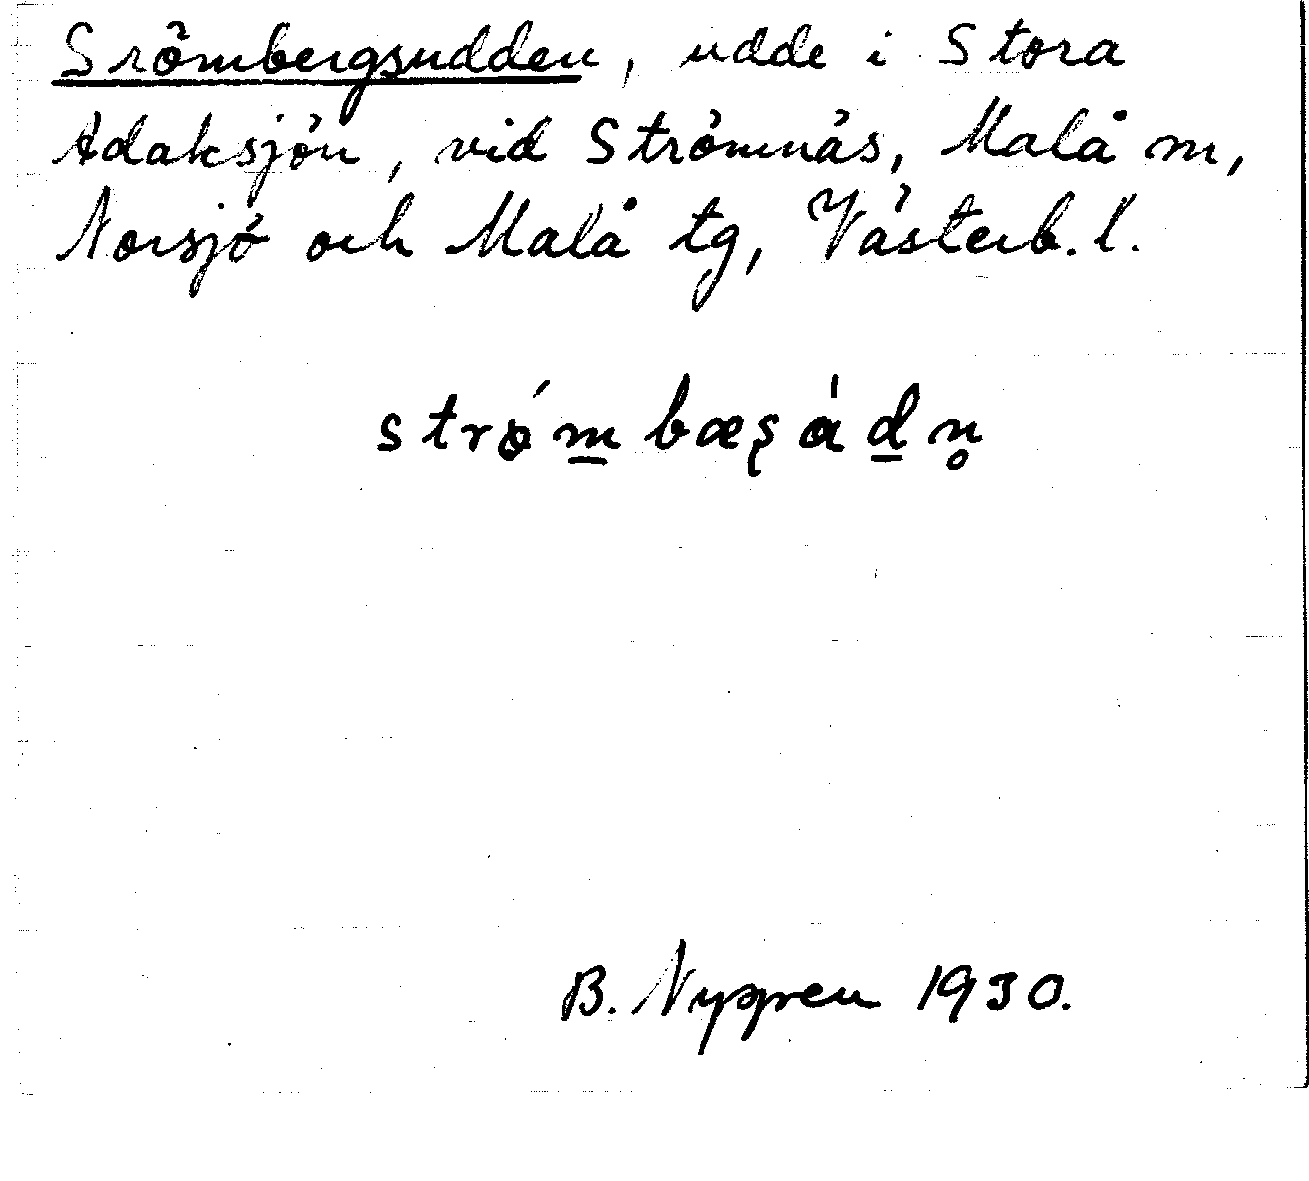 Srömbergsudden, udde i Stora
Adaksjön, vid Strömnäs, Malå m,
Norsjö och Malå tg, Västerb. l.
B. Nygren 1930.